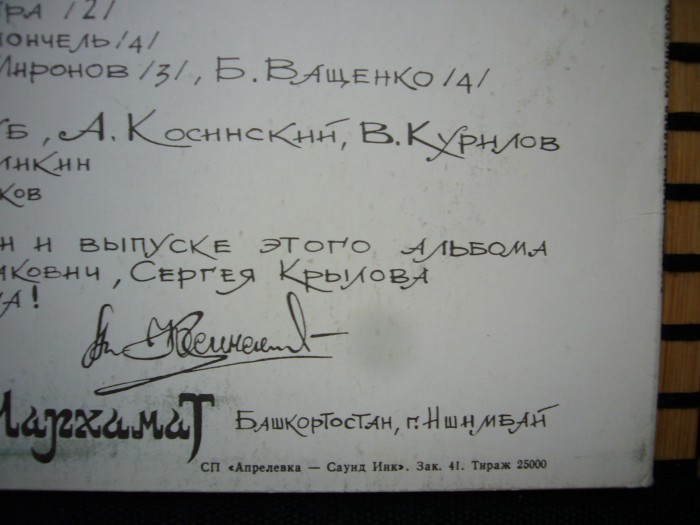 ТРА /2/
ЛОНЧЕЛЬ /4/
МИРОНОВ /3/, Б. ВАЩЕНКО /4/
УБ, А. КОСИНСКИЙ, В. КУРИЛОВ
ИНКИН
КОВ
Н И ВЫПУСКЕ ЭТОГО АЛЬБОМА
АКОВИЧ, СЕРГЕЯ КРЫЛОВА
НА!
Мархамат БАШКОРТОСТАН, г. ИШИМБАЙ
СП «Апрелевка — Саунд Инк». Зак. 41. Тираж 25000